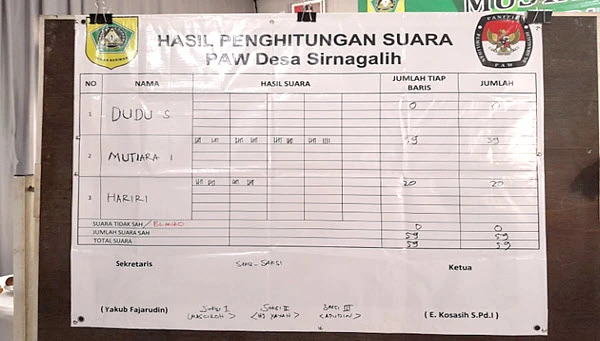 MUSY
HASIL PENGHITUNGAN SUARA
PAW Desa Sirnagalih
PANITIA
PAW
NO NAMA HASIL SUARA JUMLAH TIAP BARIS JUMLAH
1 DUDU S 0
2 MUTIARA I 39 39
3 HARIRI 20 20
SUARA TIDAK SAH / BLANKO 0 0
JUMLAH SUARA SAH 59 59
TOTAL SUARA 59 59
Sekretaris SAKSI - SAKSI Ketua
SAKSI I SAKSI II SAKSI III
(Yakub Fajarudin) (E. Kosasih S.Pd.I)